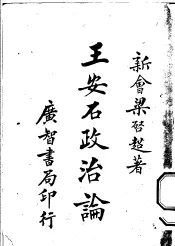 新會梁啓超著
王安石政治論
廣智書局印行